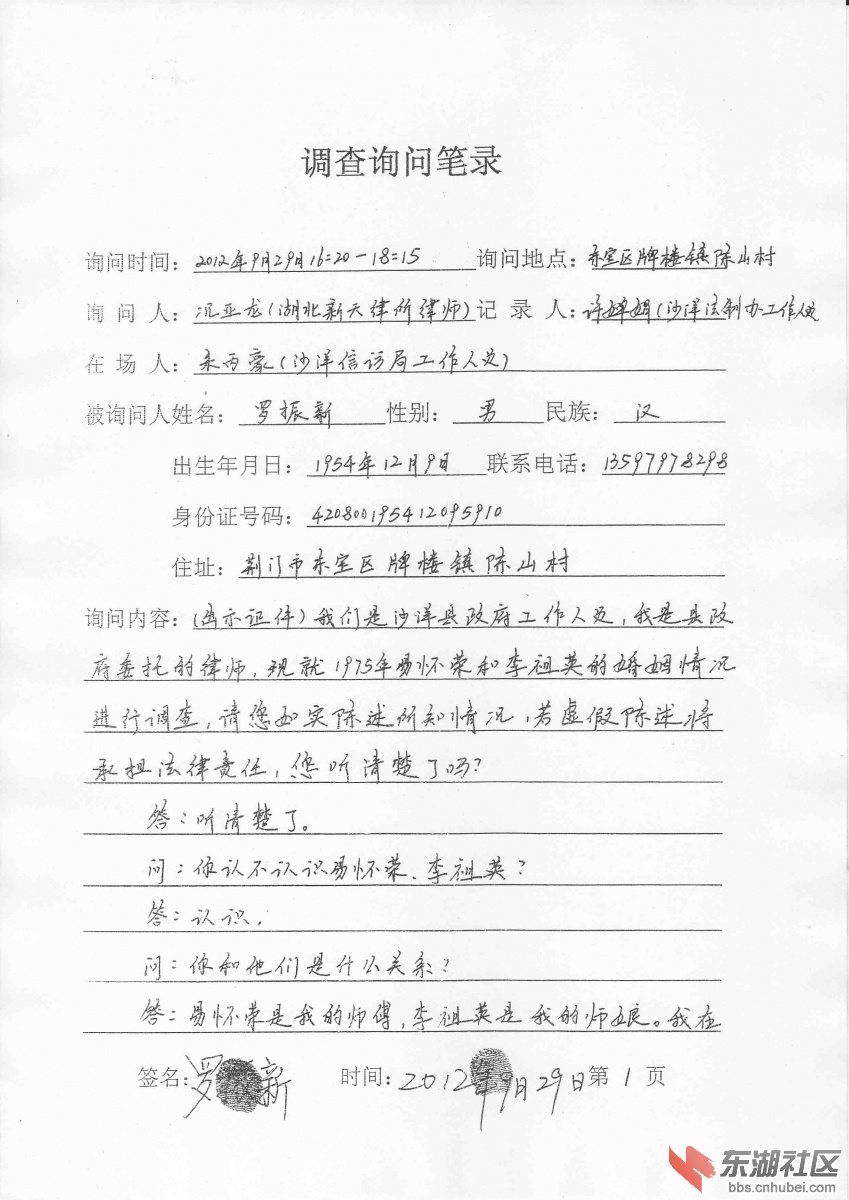 调查询问笔录
询问时间：2012年9月29日16:20-18:15 询问地点：东宝区牌楼镇陈山村
询问人：况亚龙（湖北新天律所律师）记录人：许婵娟（沙洋法制办工作人员
在场人：朱丙豪（沙洋信访局工作人员）
被询问人姓名：罗振新 性别：男 民族：汉
出生年月日：1954年12月9日 联系电话：13597978298
身份证号码：420800195412095910
住址：荆门市东宝区牌楼镇陈山村
询问内容：（出示证件）我们是沙洋县政府工作人员，我是县政
府委托的律师，现就1975年易怀荣和李祖英的婚姻情况
进行调查，请您如实陈述所知情况，若虚假陈述将
承担法律责任，您听清楚了吗？
答：听清楚了。
问：你认不认识易怀荣、李祖英？
答：认识.
问：你和他们是什么关系？
答：易怀荣是我的师傅，李祖英是我的师娘。我在
签名：罗 新 时间：2012年9月29日第1页
东湖社区
bbs.cnhubei.com